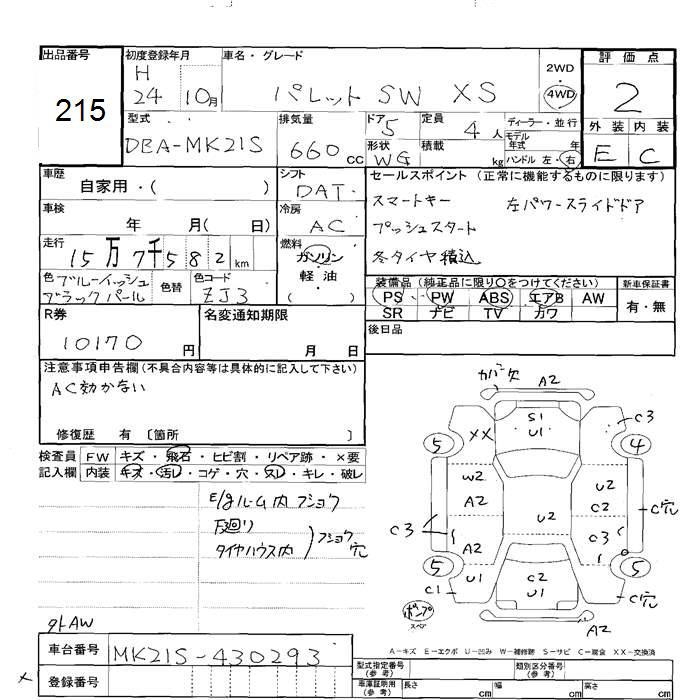 出品番号
215
初度登録年月
H
24 10月
車名・グレード
パレット SW XS
2WD
・
4WD
評価点
2
外装 内装
E C
型式
DBA-MK21S
排気量
660 cc
ドア 5
形状 WG
定員 4 人
積載 kg
ディーラー・並行
モデル
年式 年
ハンドル 左・右
車歴
自家用・( )
シフト
DAT
車検
年 月( 日)
冷房
AC
走行
15万7千582 km
燃料
ガソリン
軽油
( )
セールスポイント (正常に機能するものに限ります)
スマートキー 左パワースライドドア
プッシュスタート
冬タイヤ積込
色 ブルーイッシュ
ブラックパール
色替
色コード
ZJ3
装備品 (純正品に限り○をつけてください)
PS PW ABS エアB AW
SR ナビ TV カワ
新車保証書
有・無
R券
10170 円
名変通知期限
月 日
後日品
注意事項申告欄 (不具合内容等は具体的に記入して下さい)
AC効かない
修復歴 有 〔箇所 〕
検査員
記入欄
FW キズ・飛石・ヒビ割・リペア跡・×要
内装 キズ・汚レ・コゲ・穴・スレ・キレ・破レ
E/gルーム内フショク
下廻り
タイヤハウス内
フショク
穴
外AW
カバー欠
A2
S1
U1
XX
C3
5
4
W2
A2
U2
C2
U2
C穴
C3
A2
C3
1
5
5
U1
C2
U1
C1
C穴
ポンプ
スペア
A2
A-キズ E-エクボ U-凹み W-補修跡 S-サビ C-腐食 XX-交換済
車台番号
MK21S-430293
登録番号
×
型式指定番号
(参考)
類別区分番号
(参考)
車庫証明用
(参考)
長さ cm
幅 cm
高さ cm